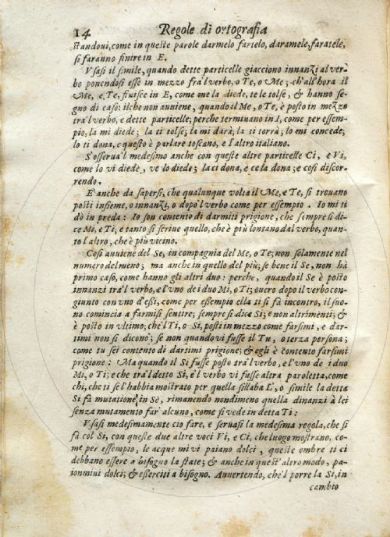 14 Regole di ortografia
standoui, come in queste parole darmelo fartelo, daramele, faratele,
si faranno finire in E.
Vsasi il simile, quando dette particelle giacciono innanzi al ver
bo ponendosi esse in mezzo fra'l verbo, o Te, o Me; ch'all'hora il
Me, e Te, finisce in E, come me la diede, te le tolse, & hanno se
gno di caso: ilche non auuiene, quando il Me, o Te, è posto in mezzo
tra'l verbo, e dette particelle, perche terminano in I, come per essem-
pio, la mi diede; la ti tolse; la mi darà, la ti torrà; lo mi concede,
lo ti dona, e questo è parlare toscano, e l'altro italiano.
S'osserua'l medesimo anche con queste altre particelle Ci, e Vi,
come lo vi diede, ve lo diede; la ci dona, e ce la dona; e così discor-
rendo.
E anche da sapersi, che qualunque volta il Me, e Te, si trouano
posti insieme, o innanzi, o dopo'l verbo come per essempio. Io mi ti
dò in preda: Io son contento di darmiti prigione, che sempre si di-
ce Mi, e Ti, e tanto si scriue quello, che è più lontano dal verbo, quan-
to l'altro, che è più vicino.
Così auuiene del Se, in compagnia del Me, o Te; non solamente nel
numero del meno, ma anche in quello del più, se bene il Se, non hà
primo caso, come hanno gli altri duo: perche, quando il Se è posto
innanzi tra'l verbo, e l'vno de i duo Mi, o Ti; euero dopo il verbo con-
giunto con vno d'essi, come per essempio ella ti si fà incontro, il suo-
no comincia a farmisi sentire; sempre si dice Si; e non altrimenti; &
è posto in vltimo; che'l Ti, o Si, posti in mezzo come farsimi, e dar-
simi non si dicono; se non quando vi fusse il Tu, o terza persona;
come tu sei contento di darsimi prigione; & egli è contento farsimi
prigione: Ma quando'l Si fusse posto tra'l verbo, e l'vno de i duo
Mi, o Ti; e che tra'l detto Si, e'l verbo vi fusse altra paroletta, come
chi, che ti se l'habbia mostrato per quella sillaba L', o simile la detta
Si fà mutatione, in Se, rimanendo nondimeno quella dinanzi à lei
senza mutamento far'alcuno, come si vede in detta Ti:
Vsasi medesimamente ciò fare, e seruasi la medesima regola, che si
fà col Si, con queste due altre voci Vi, e Ci, che luogo mostrano, co-
me per essempio, le acque mi vi paiano dolci, queste ombre ti ci
debbano essere a bisogno la state; & anche in quest'altro modo, pa-
ionmiui dolci; & esserti ci a bisogno. Auuertendo, che'l porre la Si, in
cambio